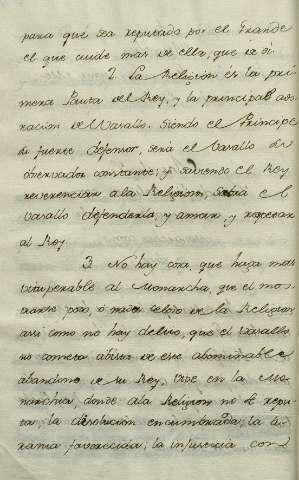 para que sea reputado por el Grande
el que cuide mas de ella, que de si
2. La Religion es la pri
mera Pauta del Rey, y la principal ado
racion de Vasallo. Siendo el Principe
su fuerte defensor, será el Vasallo su
observador constante; y sabiendo el Rey
reverenciar a la Religion, Sabrá el
Vasallo defenderla, y amar, y respetar
al Rey.
3. No hay cosa, que haga mas
vituperable al Monarcha, que el mos
trarse poco, ó nada zeloso de la Religion
asi como no hay delito, que el Vasallo
no cometa a vista de ese abominable
abandono de su Rey. Vive en la Mo
narchia, donde a la Religion no se repu
ta; la disolucion encumbrada; la ti
rania favorecida; la injusticia con